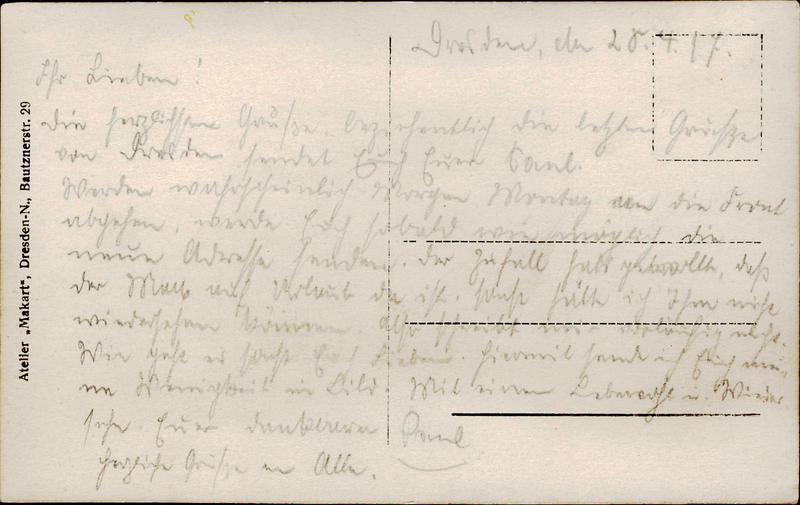 Dresden, den 28. 4. 17.
Ihr Lieben!
Die herzlichsten Grüsse, beziehentlich die letzten Grüsse
von Dresden sendet Euch Euer Paul.
Werden wahrscheinlich Morgen Montag an die Front
abgehen, werde Euch sobald wie möglich die
neue Adresse senden. Der Zufall hats gewollt, daß
der Max auf Urlaub da ist. sonst hätte ich Ihn nicht
wiedersehen können. Also schreibt mir vorläufig nicht.
Wie geht es sonst Euch Lieben. Hiermit sende ich Euch mei-
ne Wenigkeit im Bild. Mit einem Lebewohl u. Wieder-
sehn. Euer dankbarer Paul
herzliche Grüsse an Alle.
Atelier „Makart“, Dresden-N., Bautznerstr. 29